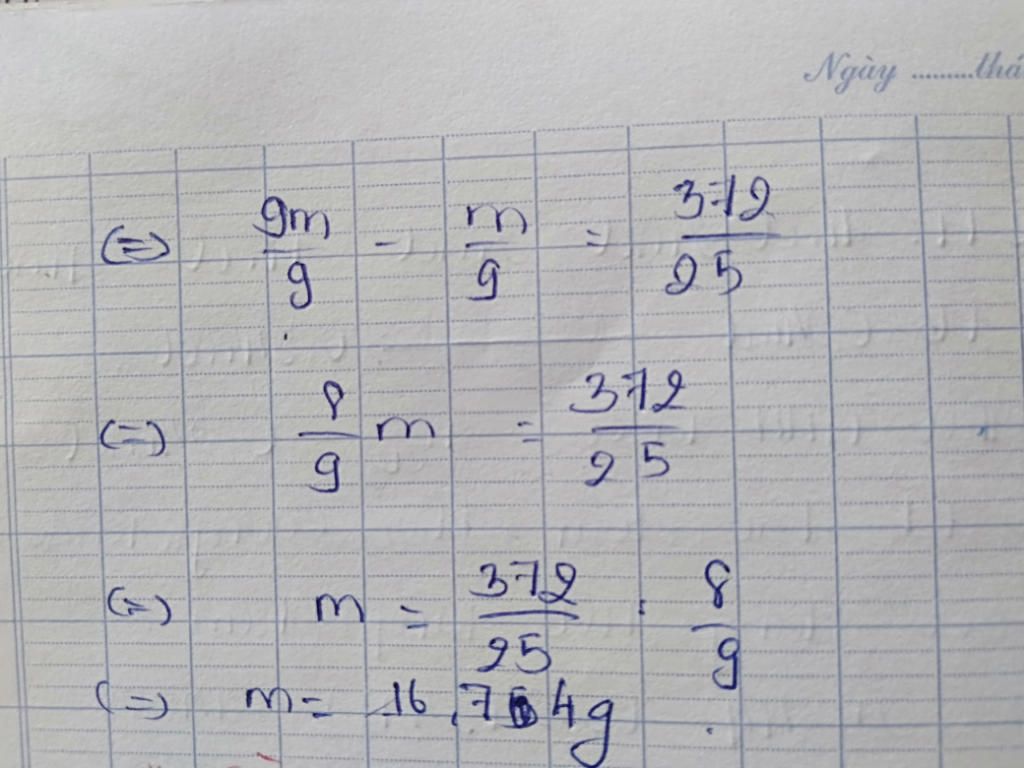 Ngày .........thá
(=) 9m/9 - m/9 = 372/25
(=) 8/9 m = 372/25
(=) m = 372/25 : 8/9
(=) m = 16,74g